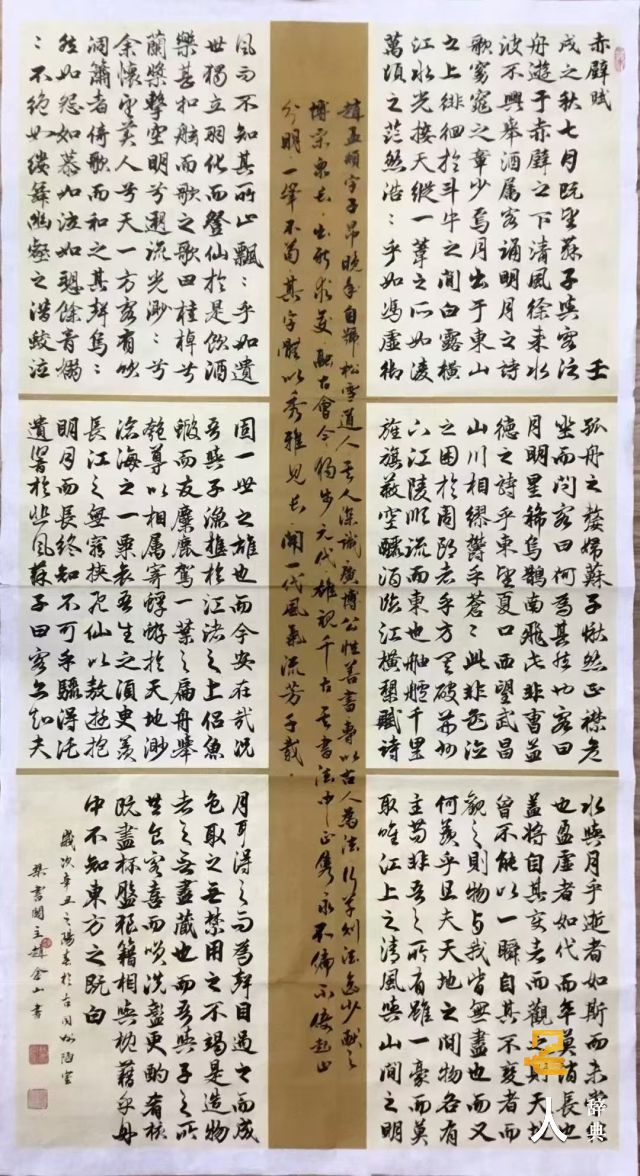 赤壁賦 壬
戌之秋七月既望蘇子與客泛
舟遊于赤壁之下清風徐來水
波不興舉酒属客誦明月之詩
歌窈窕之章少焉月出于東山
之上徘徊於斗牛之間白露橫
江水光接天縱一葦之所如凌
萬頃之茫然浩〻乎如馮虛御
風而不知其所止飄〻乎如遺
世獨立羽化而登仙於是飲酒
樂甚扣舷而歌之歌曰桂棹兮
蘭槳擊空明兮泝流光渺〻兮
余懷望美人兮天一方客有吹
洞簫者倚歌而和之其聲烏〻
然如怨如慕如泣如愬餘音嫋
〻不絕如縷舞幽壑之潛蛟泣
孤舟之嫠婦蘇子愀然正襟危
坐而問客曰何為其然也客曰
月明星稀烏鵲南飛此非曹孟
德之詩乎東望夏口西望武昌
山川相繆鬱乎蒼〻此非孟德
之困於周郎者乎方其破荊州
下江陵順流而東也舳艫千里
旌旗蔽空釃酒臨江橫槊賦詩
固一世之雄也而今安在哉況
吾與子漁樵於江渚之上侶魚
蝦而友麋鹿駕一葉之扁舟舉
匏尊以相属寄蜉蝣於天地渺
滄海之一粟哀吾生之須臾羨
長江之無窮挾飛仙以敖遊抱
明月而長終知不可乎驟得託
遺響於悲風蘇子曰客亦知夫
水與月乎逝者如斯而未嘗往
也盈虛者如代而卒莫消長也
蓋將自其變者而觀之則天地
曾不能以一瞬自其不變者而
觀之則物與我皆無盡也而又
何羨乎且夫天地之間物各有
主苟非吾之所有雖一豪而莫
取唯江上之清風與山間之明
月耳得之而為聲目遇之而成
色取之無禁用之不竭是造物
者之無盡藏也而吾與子之所
共食客喜而咲洗盞更酌肴核
既盡杯盤狼籍相與枕藉乎舟
中不知東方之既白
歲次辛丑之陽春於古同州陋室
書閣主趙金山書
趙孟頫字子昂晚年自號松雪道人其人深識廣博公性善書專以古人為法行草則法逸少獻之
博宗衆長出新求變融古會今獨步元代雄視千古其書法中正雋永不偏不倚起止
分明一筆不苟其字體以秀雅見長開一代風氣流芳千載
名人辞典